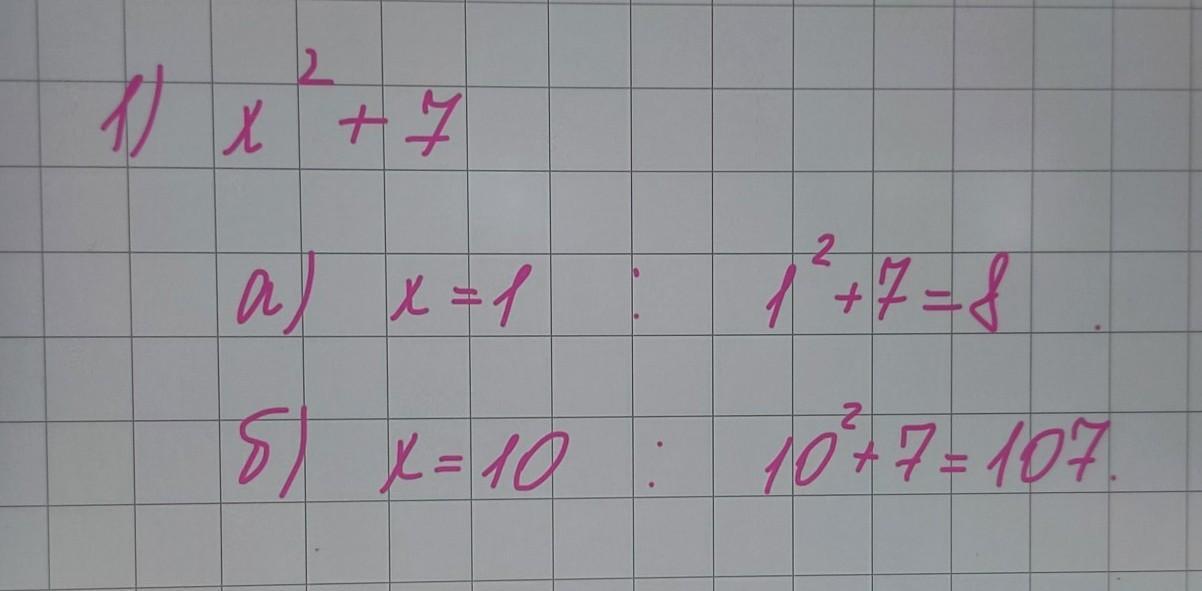 1) x² + 7
а) x = 1 : 1² + 7 = 8 .
б) x = 10 : 10² + 7 = 107.